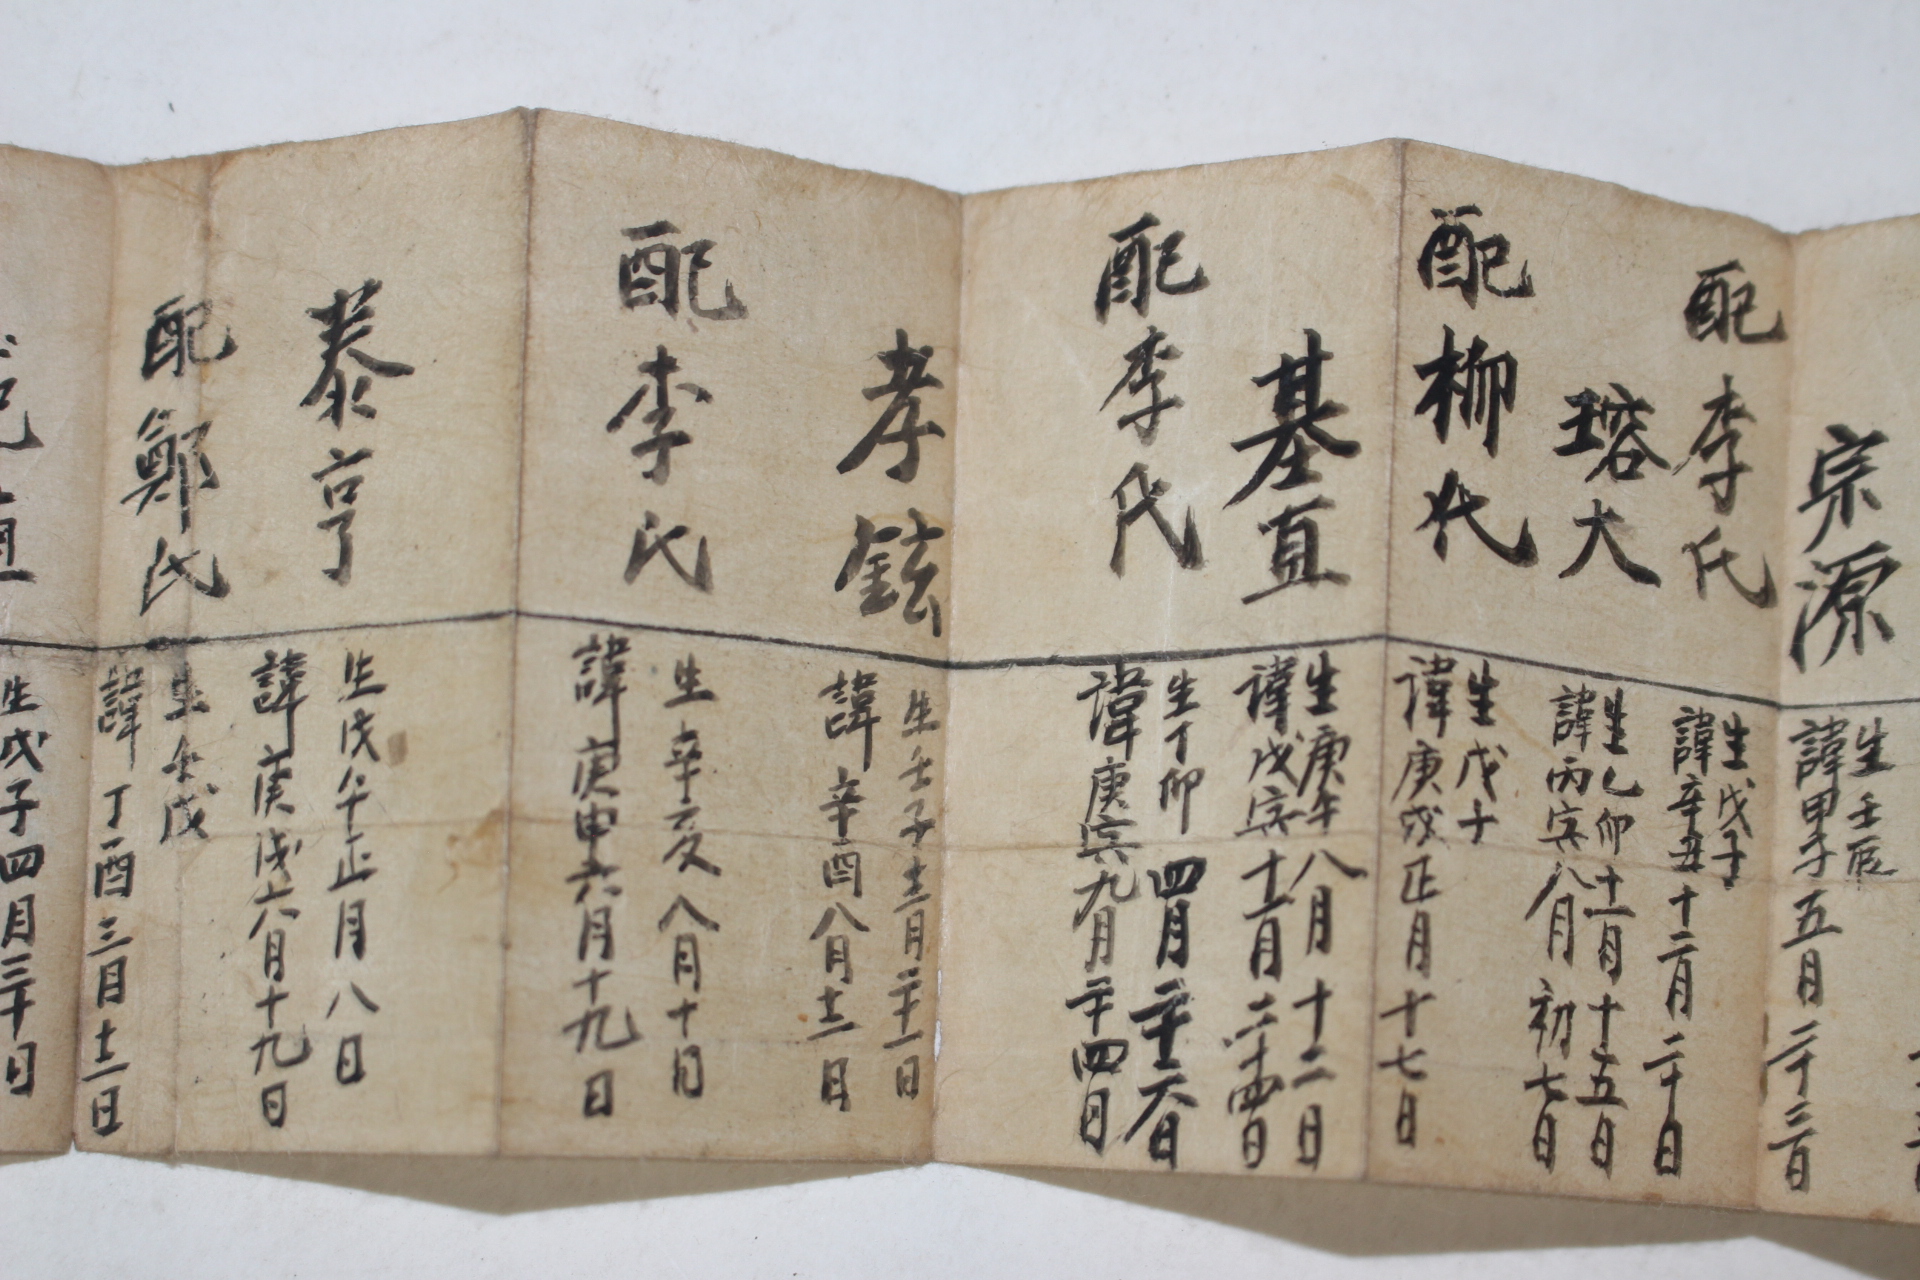 宗源
生壬辰
諱甲子五月二十三日
配李氏
生戊子
諱辛丑十二月二十日
瑢大
生乙卯十一月十五日
諱丙寅八月初七日
配柳氏
生戊子
諱庚戌正月十七日
基直
生庚午八月十二日
諱戊寅十一月二十四日
配李氏
生丁卯四月二十六日
諱庚寅九月二十四日
孝鉉
生壬子十二月二十一日
諱辛酉八月十二日
配李氏
生辛亥八月十日
諱庚申六月十九日
泰亨
生戊午正月八日
諱庚戌六八月十九日
配鄭氏
生壬戌
諱丁酉三月十二日
生戊子四月三十日